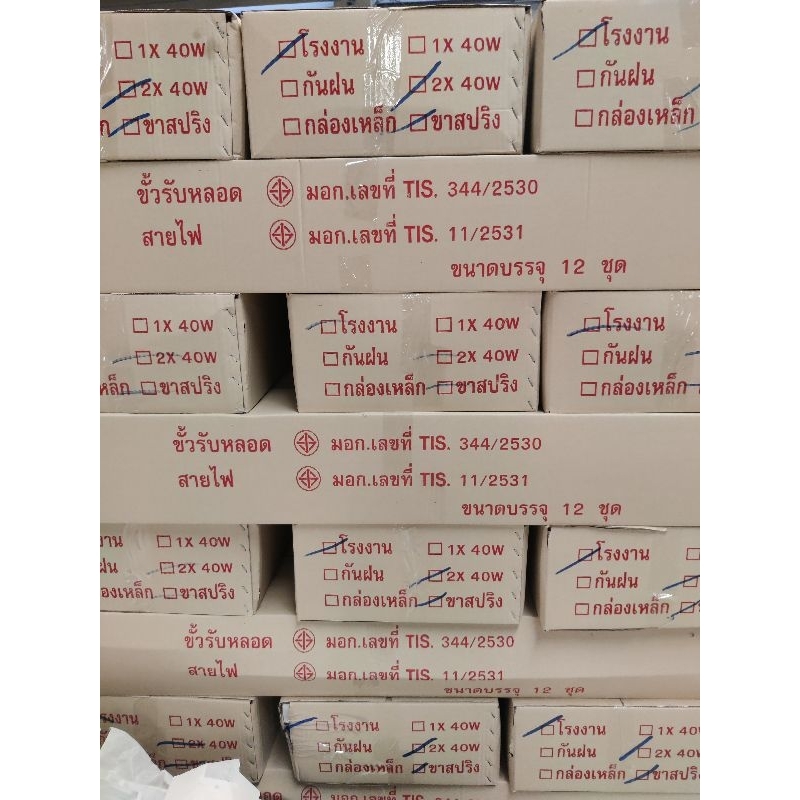 ☐ 1X 40W
☐ 2X 40W
ก ☐ ขาสปริง
☐ โรงงาน ☐ 1X 40W
☐ กันฝน ☐ 2X 40W
☐ กล่องเหล็ก ☐ ขาสปริง
☐ โรงงาน
☐ กันฝน
☐ กล่องเหล็ก
ขั้วรับหลอด มอก.เลขที่ TIS. 344/2530
สายไฟ มอก.เลขที่ TIS. 11/2531
ขนาดบรรจุ 12 ชุด
☐ 1X 40W
☐ 2X 40W
หล็ก ☐ ขาสปริง
☐ โรงงาน ☐ 1X 40W
☐ กันฝน ☐ 2X 40W
☐ กล่องเหล็ก ☐ ขาสปริง
☐ โรงงาน
☐ กันฝน
☐ กล่องเหล็ก
ขั้วรับหลอด มอก.เลขที่ TIS. 344/2530
สายไฟ มอก.เลขที่ TIS. 11/2531
ขนาดบรรจุ 12 ชุด
งาน ☐ 1X 40W
ฝน ☐ 2X 40W
องเหล็ก ☐ ขาสปริง
☐ โรงงาน ☐ 1X 40W
☐ กันฝน ☐ 2X 40W
☐ กล่องเหล็ก ☐ ขาสปริง
☐ โรงงาน
☐ กันฝน
☐ กล่องเหล็ก
ขั้วรับหลอด มอก.เลขที่ TIS. 344/2530
สายไฟ มอก.เลขที่ TIS. 11/2531
ขนาดบรรจุ 12 ชุด
รงงาน ☐ 1X 40W
☐ 2X 40W
☐ ขาสปริง
☐ โรงงาน ☐ 1X 40W
☐ กันฝน ☐ 2X 40W
☐ กล่องเหล็ก ☐ ขาสปริง
☐ โรงงาน ☐ 1X 40
☐ กันฝน ☐ 2X 40W
☐ กล่องเหล็ก ☐ ขาสปริง
มอก.เลขที่ TIS.